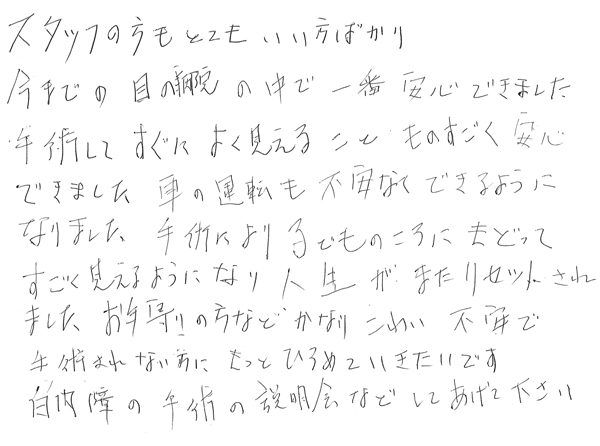 スタッフの方もとてもいい方ばかり
今までの目の病院の中で一番安心できました
手術してすぐによく見えること ものすごく安心
できました 車の運転も不安なくできるように
なりました 手術により子どものころにもどって
すごく見えるようになり人生がまたリセットされ
ました お年寄りの方などかなりこわい 不安で
手術されない方に もっとひろめていきたいです
白内障の手術の説明会などしてあげて下さい